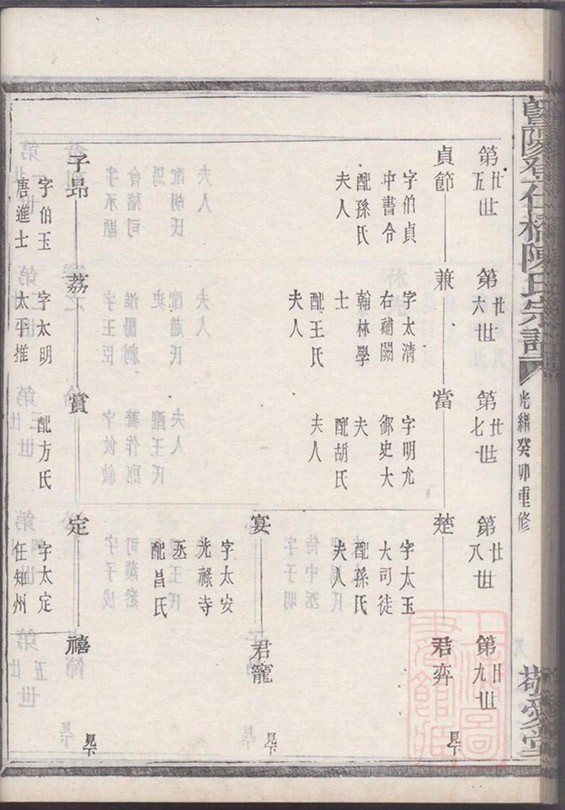 暨陽登仕橋陳氏宗譜
光緒癸卯重修
敬愛堂
第廿五世
第廿六世
第廿七世
第廿八世
第廿九世
貞節
兼
當
楚
君弈
見下
字伯貞
中書令
配孫氏
夫人
字太清
右補闕
翰林學
士
配王氏
夫人
字明允
御史大
夫
配胡氏
夫人
字太玉
大司徒
配孫氏
夫人
宴
君寵
見下
字太安
光祿寺
丞
配昌氏
子昂
荔
賞
定
禧
見下
字伯玉
唐進士
字太明
太平推
配方氏
字太定
任知州